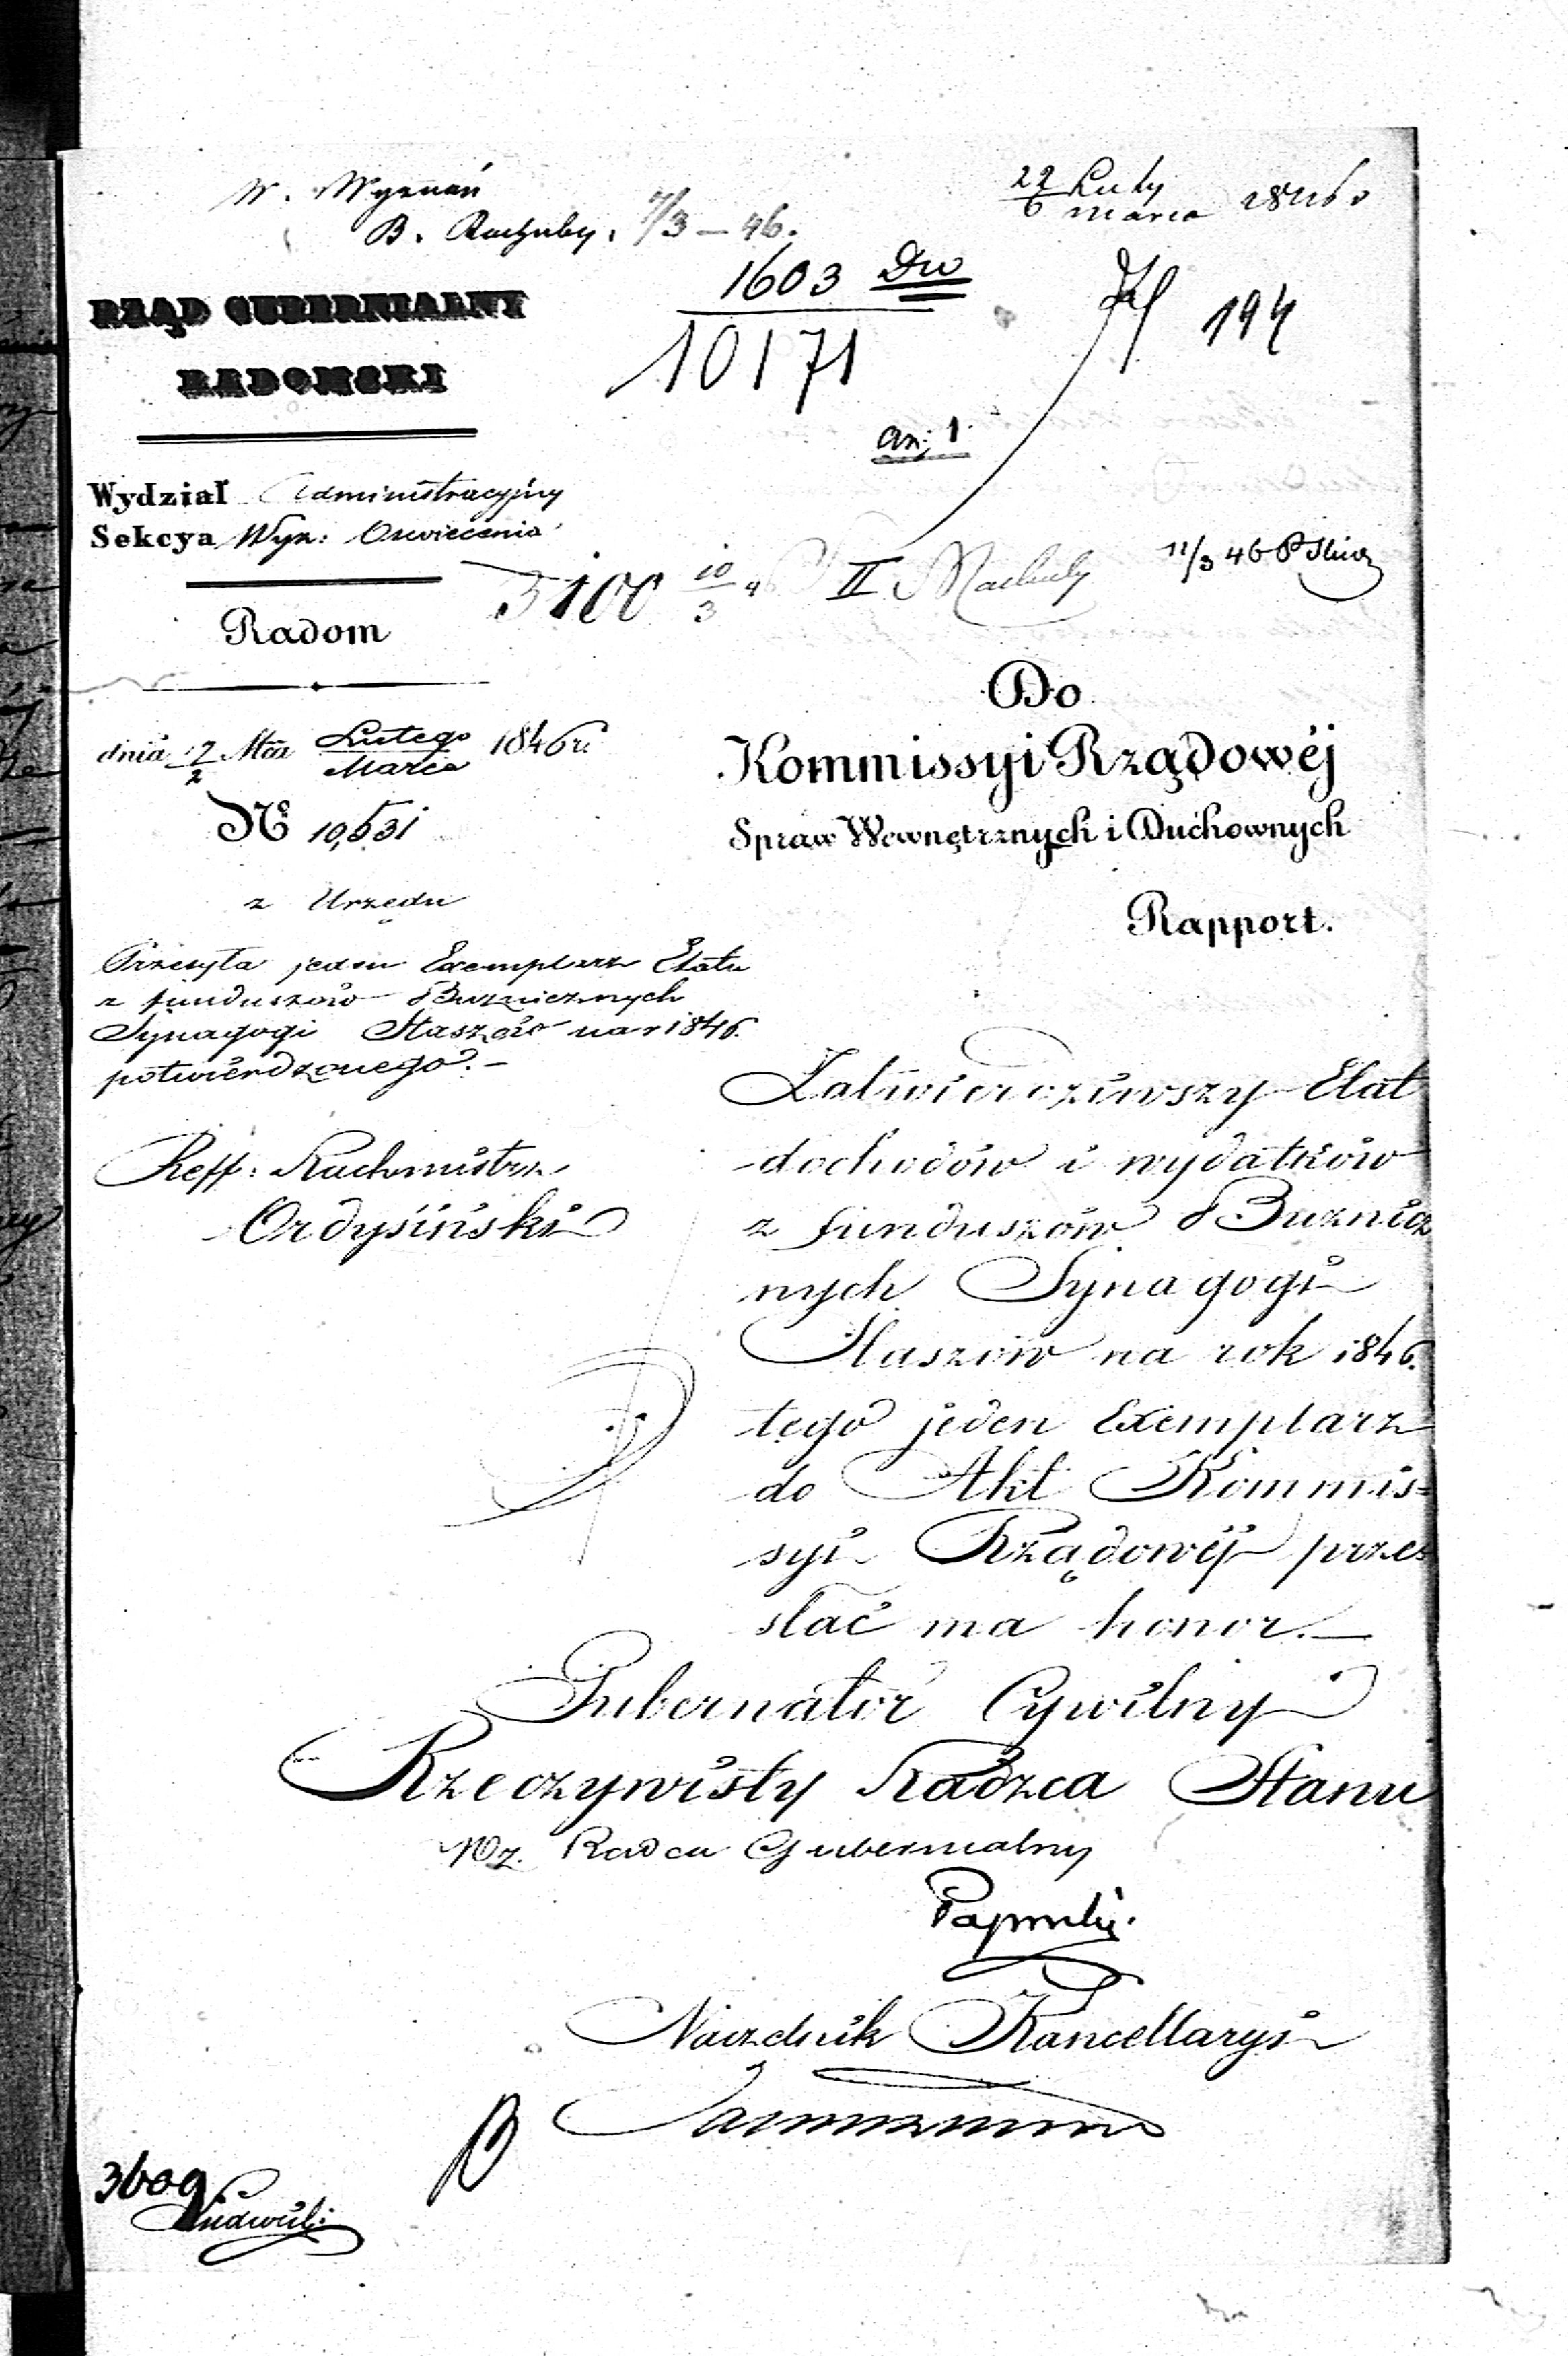 W. Wyznań
22/6 Luty/Marca 1846
B. Rachuby. 7/3 – 46.
1603 Dw
194
RZĄD GUBERNIALNY
10171
RADOMSKI
an: 1.
Wydział Administracyjny
Sekcya Wyz: Oswiecenia
5100 10/3 II 11/3 46
Radom
Do
dnia /2 Mca Lutego/Marca 1846 r.
Kommissyi Rządowéj
Spraw Wewnętrznych i Duchownych
Nº 10,531
z Urzędu
Rapport.
Przesyła jeden Exemplarz Etatu
z funduszów Bużnicznych
Synagogi Staszów na r 1846.
potwierdzonego. –
Zatwierdziwszy Etat
dochodów i wydatków
z funduszów Bużnicz
nych Synagogi
Staszów na rok 1846.
tego jeden Exemplarz
do Akt Kommis=
syi Rządowéj prze=
słać ma honor. —
Reff: Rachmistrz
Ordysiński
Gubernator Cywilny
Rzeczywisty Radzca Stanu
Wz. Radca Gubernialny
Naczelnik Kancellaryi
3609